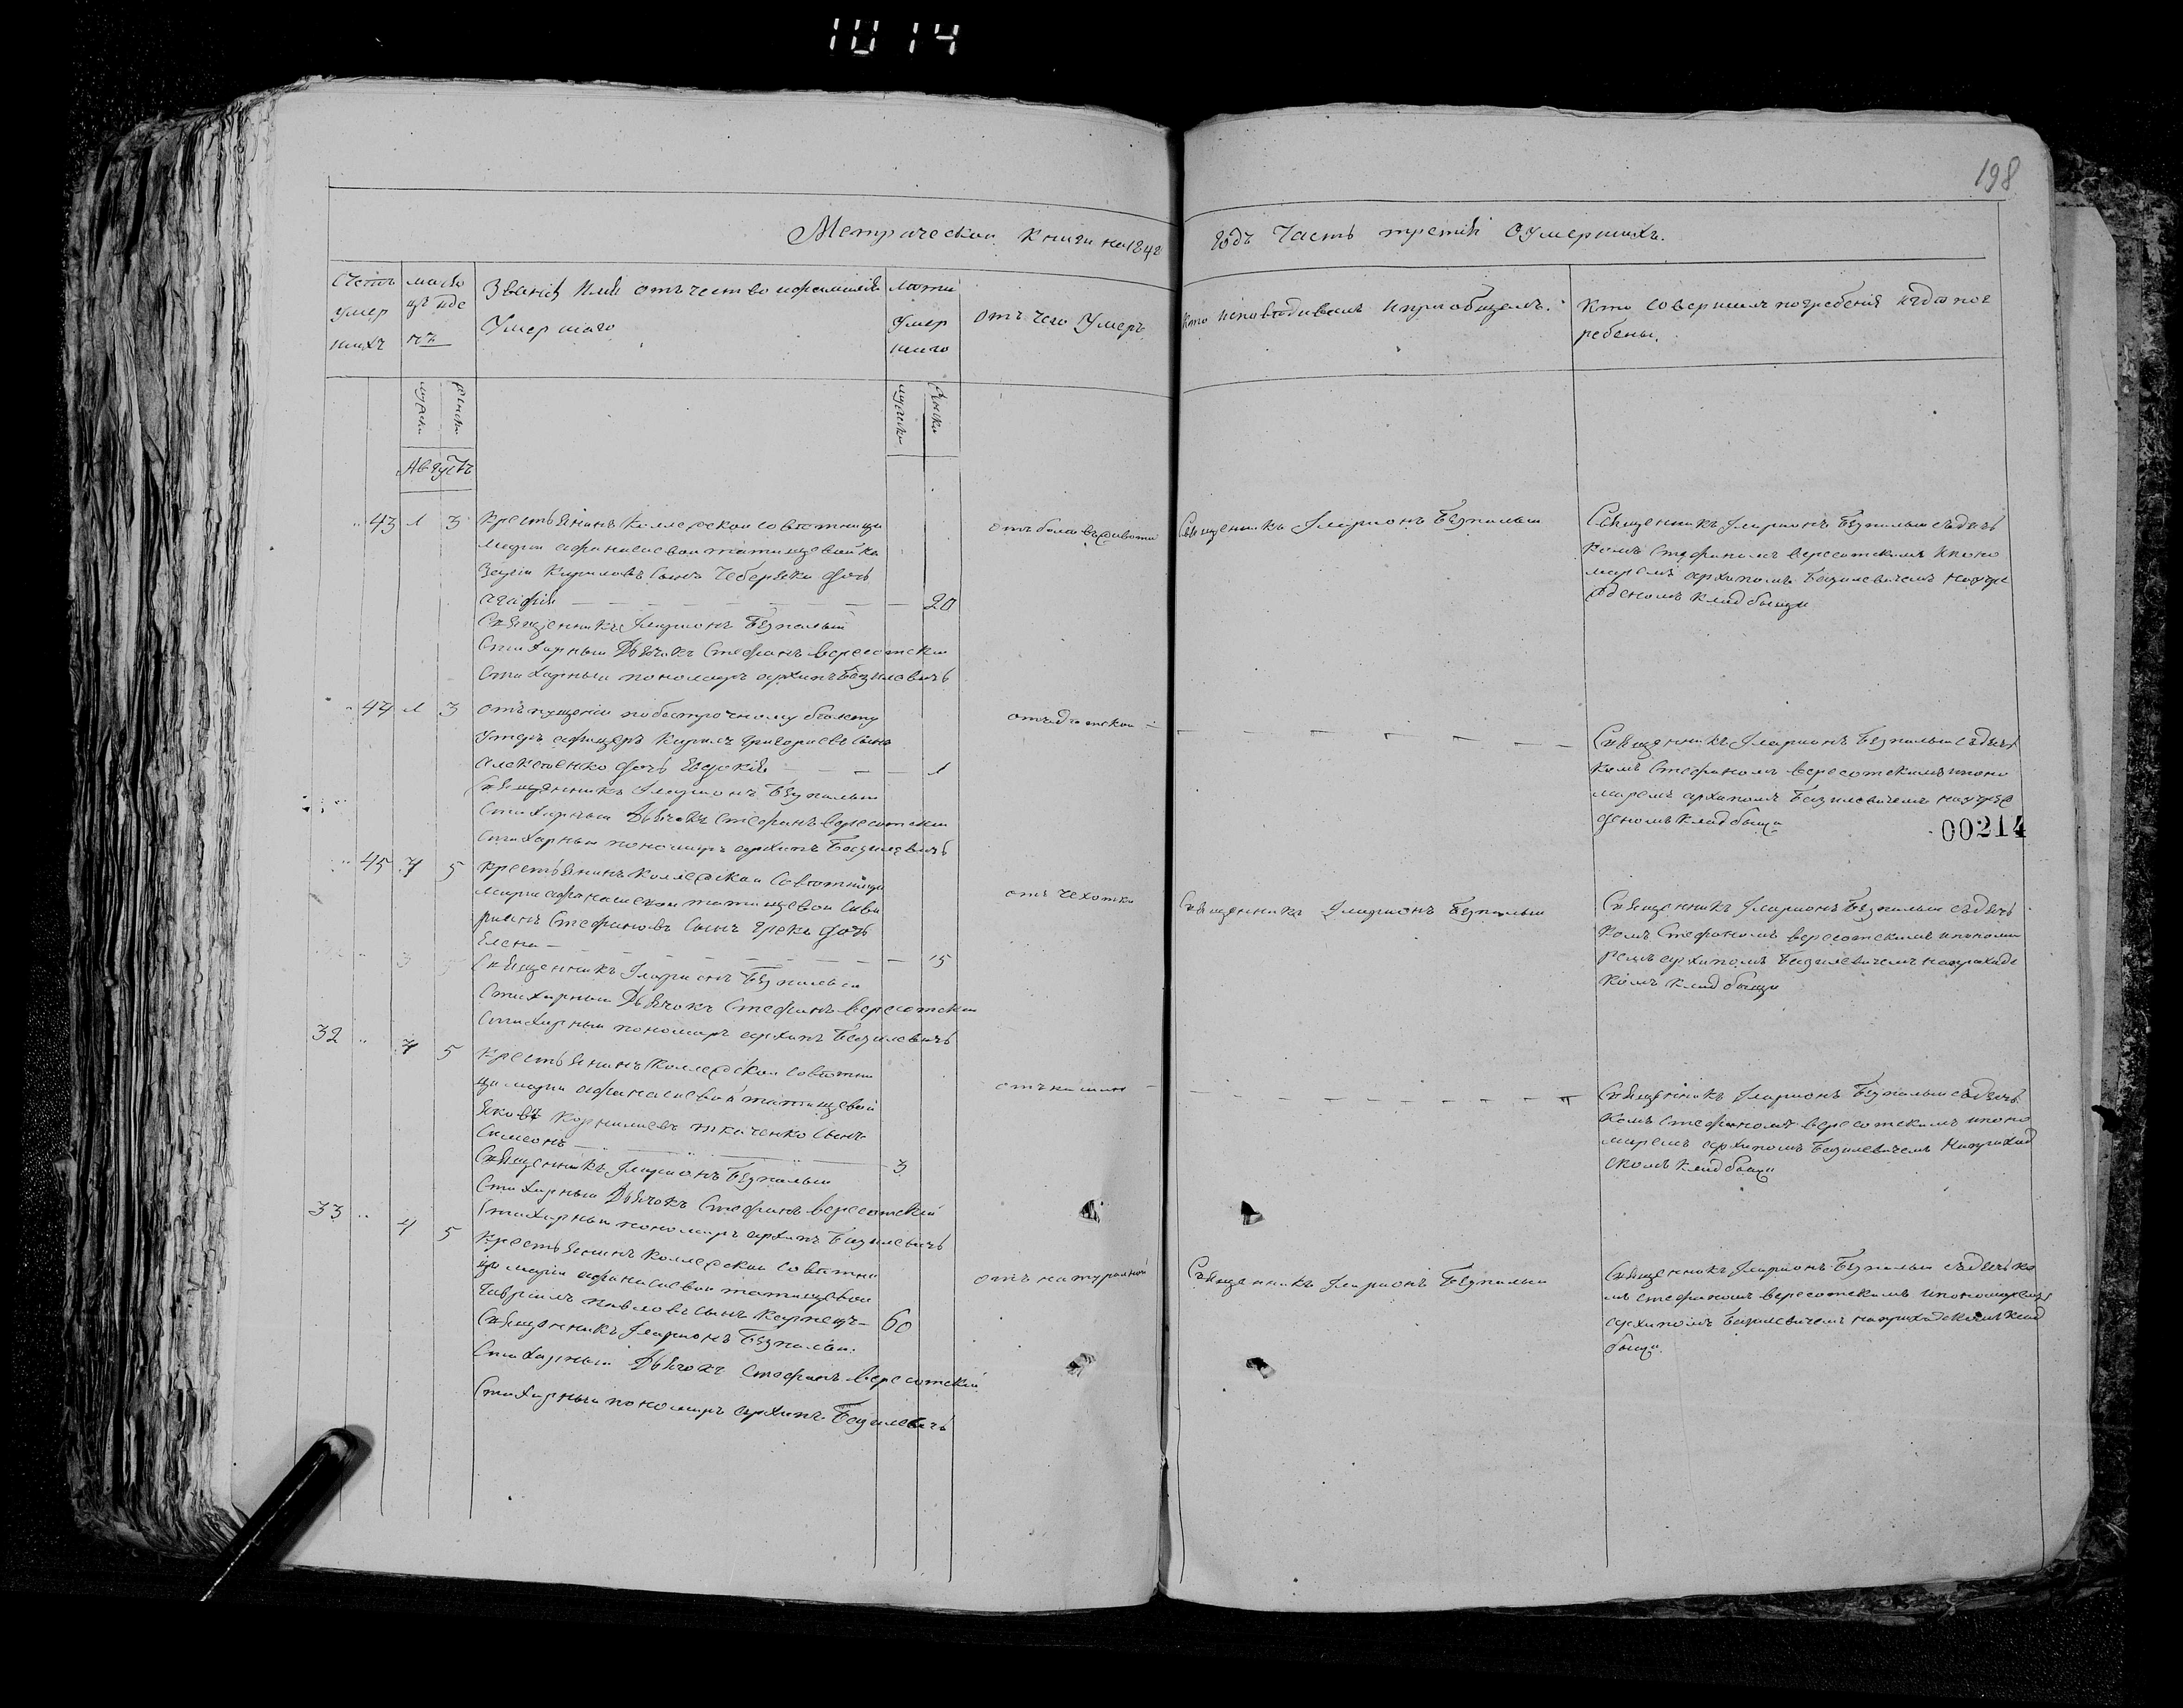 1014
198
Метрической книги на 1842 годъ Часть третія Оумершихъ.
Счетъ умершихъ
месяцъ и день
Званіе Имя отъчество и фамилія Умершаго
Лета Умершаго
отъ чего Умеръ
Кто исповедывалъ и приобщалъ.
Кто совершилъ погребеніе и где погребены.
мужеска
женска
мужеска
женска
Августъ
43 1 3
крестьянинъ Коллежской советницы
Марiи Афанасіевои татищевой ка
Кирилова сына Чеберяки дочь
Агафія — 20
Священникъ Иларионъ Безпалый
Стихарный Дьячокъ Стефанъ Вересотскій
Стихарный пономарь Архипъ Базилевичъ
Священникъ Иларионъ Безпалый
Священникъ Иларионъ Безпалый съ дьяч
комъ Стефаномъ Вересотскимъ и поно
маремъ Архипомъ Базилевичемъ
кладбищи
44 1 3
отъпущеній по безсрочному билету
унтеръ афицеръ Кирилъ Григориевъ сынъ
Алексеенко дочь Евдокія — 1
Священникъ Иларионъ Безпалый
Стихарный Дьячокъ Стефанъ Вересотскій
Стихарный пономарь Архипъ Базилевичъ
Священникъ Иларионъ Безпалый съ дьяч
комъ Стефаномъ Вересотскимъ и поно
маремъ Архипомъ Базилевичемъ
кладбищи
00214
45 5
крестьянинъ Коллежской Советницы
Марiи Афанасіевои татищевои
Стефановъ сынъ Грека дочь
Елена — 15
Священникъ Иларионъ Безпалый
Стихарный Дьячокъ Стефанъ Вересотскій
Стихарный пономарь Архипъ Базилевичъ
отъ чехотки
Священникъ Иларионъ Безпалый
Священникъ Иларионъ Безпалый съ дьяч
комъ Стефаномъ Вересотскимъ и понома
ремъ Архипомъ Базилевичемъ на приходс
комъ кладбищи
32 5
крестьянинъ Коллежской советни
цы Марiи Афанасіевой татищевой
Яковъ Корнилиевъ Ткаченко сынъ
Симеонъ — 3
Священникъ Иларионъ Безпалый
Стихарный Дьячокъ Стефанъ Вересотскій
Стихарный пономарь Архипъ Базилевичъ
Священникъ Иларионъ Безпалый съ дьяч
комъ Стефаномъ Вересотскимъ и поно
маремъ Архипомъ Базилевичемъ на приход
скомъ кладбищи
33 5
крестьянинъ Коллежской советни
цы Марiи Афанасіевой татищевой
Гавріилъ Павловъ сынъ — 60
Священникъ Иларионъ Безпалый
Стихарный Дьячокъ Стефанъ Вересотскій
Стихарный пономарь Архипъ Базилевичъ
отъ натуральной
Священникъ Иларионъ Безпалый
Священникъ Иларионъ Безпалый съ дьячко
мъ Стефаномъ Вересотскимъ и пономаремъ
Архипомъ Базилевичемъ на приходскомъ клад
бищи